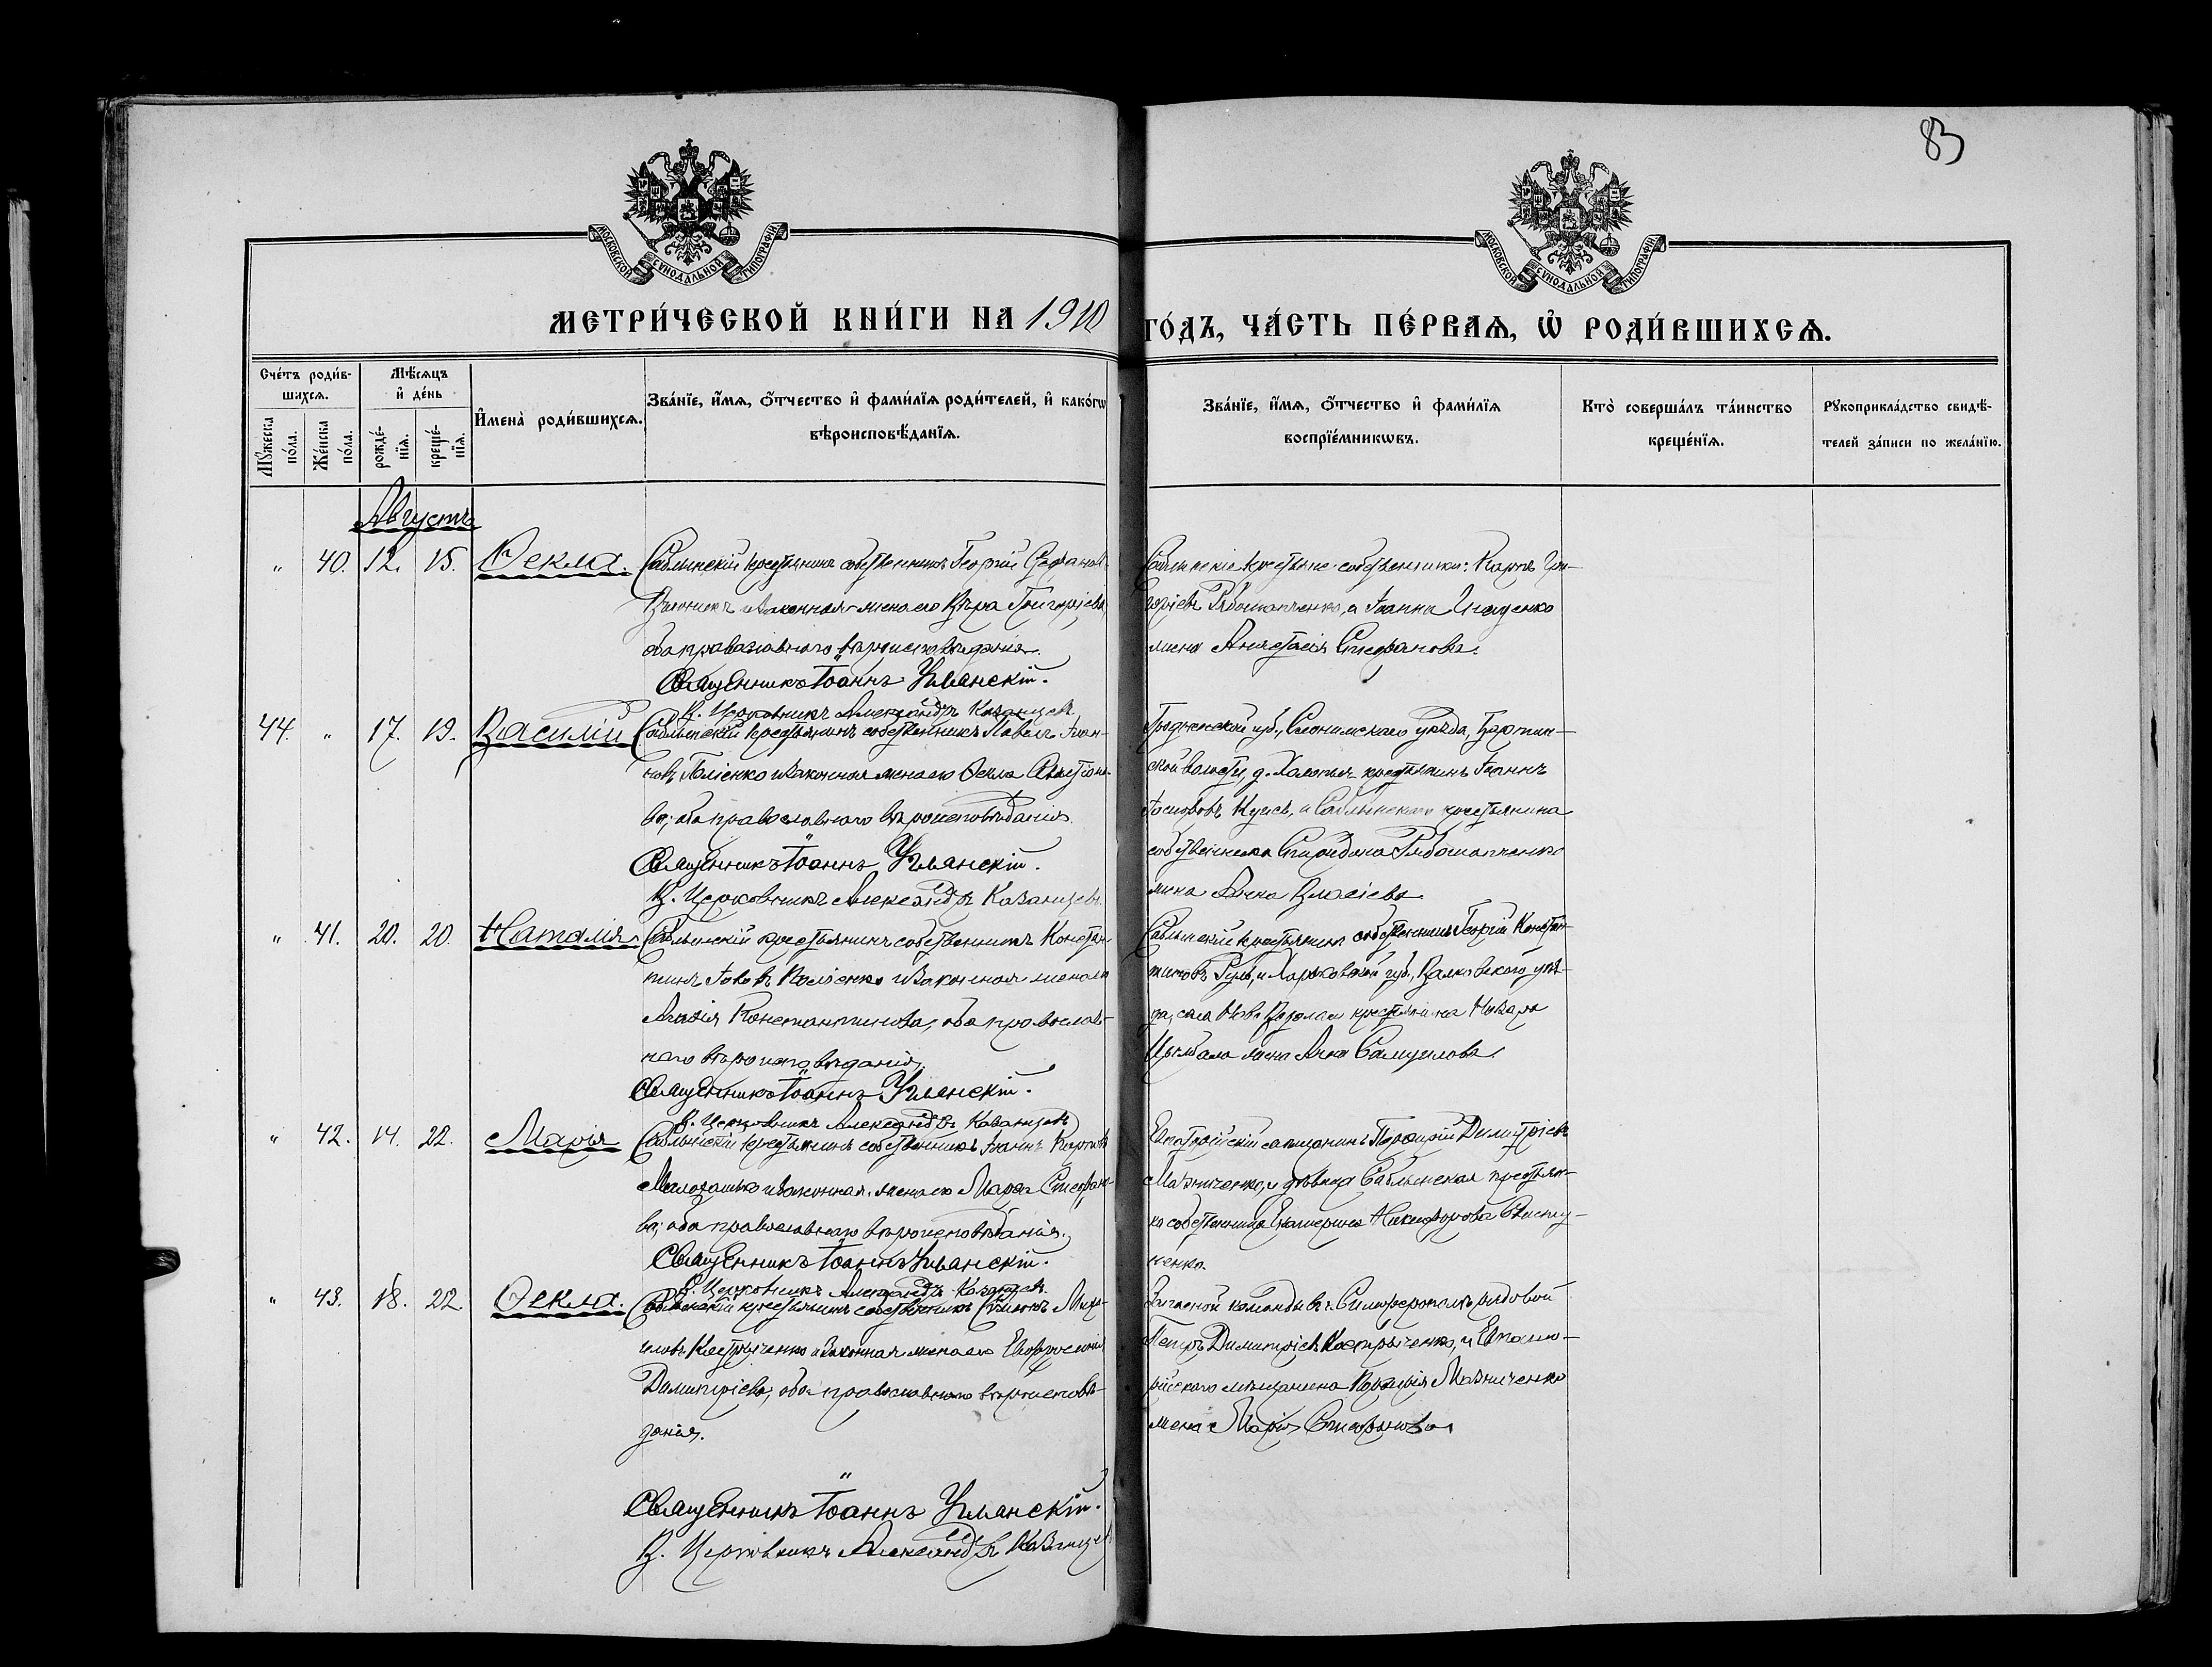 83
МОСКОВСКОЙ СѴНОДАЛЬНОЙ ТИПОГРАФІИ
МОСКОВСКОЙ СѴНОДАЛЬНОЙ ТИПОГРАФІИ
МЕТРИ́ЧЕСКОЙ КНИ́ГИ НА 1910 ГО́ДЪ, ЧА́СТЬ ПЕ́РВАѦ, Ѽ РОДИ́ВШИХСѦ.
Сче́тъ роди́в-
шихсѧ.
Мꙋ́жеска по́ла.
Же́нска по́ла.
Мѣ́сѧцъ
и҆ де́нь
рожде́-
нїѧ.
креще́-
нїѧ.
И҆мена̀ роди́вшихсѧ.
Зва́нїе, и҆́мѧ, ѻ҆́тчество и҆ фами́лїѧ роди́телей, и҆ како́гѡ
вѣроисповѣ́данїѧ.
Зва́нїе, и҆́мѧ, ѻ҆́тчество и҆ фами́лїѧ
воспрїе́мникѡвъ.
Кто̀ соверша́лъ та́инство
креще́нїѧ.
Рꙋкоприкла́дство свидѣ́-
телей за́писи по жела́нїю.
Августъ
" 40. 12. 15. Ѳекла.
Саблынскій крестьянинъ собственникъ Георгій Стефановъ
и законная жена его Вѣра Григорьева
оба православнаго вѣроисповѣданія.
Священникъ Іоаннъ Уманскій.
В. Церковникъ Александръ Казанцевъ
Саблынскіе крестьяне-собственники: Карпъ Гри-
горіевъ Рябошапченко, и Іоанна Ищенко
жена Анастасія Стефанова.
44. " 17. 19. Василій
Саблынскій крестьянинъ собственникъ Павелъ Іоан-
новъ и законная жена его Ѳекла
ва; оба православнаго вѣроисповѣданія
Священникъ Іоаннъ Уманскій.
В. Церковникъ Александръ Казанцевъ
Гродненской губ., Слонимскаго уѣзда,
ской волости, д. крестьянинъ Іоаннъ
Іосифовъ и Саблынскаго крестьянина
собственника Спиридона Рябошапченко
жена Анна Власіева
" 41. 20. 20. Наталія
Саблынскій крестьянинъ собственникъ Констан-
тинъ и законная жена его
Константинова, оба православ-
наго вѣроисповѣданія.
Священникъ Іоаннъ Уманскій.
В. Церковникъ Александръ Казанцевъ
Саблынскій крестьянинъ собственникъ Георгій Констан-
тиновъ и Харьковской губ., Валковскаго уѣз-
да, села крестьянина Назара
Цымбала жена Анна Самуилова.
" 42. 14. 22. Марія
Саблынскій крестьянинъ собственникъ Іоаннъ Карповъ
и законная жена его Марѳа Стефано-
ва; оба православнаго вѣроисповѣданія.
Священникъ Іоаннъ Уманскій.
В. Церковникъ Александръ Казанцевъ
Евпаторійскій мѣщанинъ Порфирій Димитріевъ
Мазниченко, и дѣвица Саблынская крестьян-
ка собственница Екатерина Никифорова
ненко.
" 43. 18. 22. Ѳекла.
Саблынскій крестьянинъ собственникъ Симеонъ Миха-
иловъ Костриченко и законная жена его Евфросинія
Димитріева, оба православнаго вѣроисповѣ-
данія.
Священникъ Іоаннъ Уманскій.
В. Церковникъ Александръ Казанцевъ
команды въ г. Симферополѣ рядовой
Петръ Димитріевъ Костриченко, и Евпато-
рійскаго мѣщанина Порфирія Мазниченко
жена Марія Спиридонова